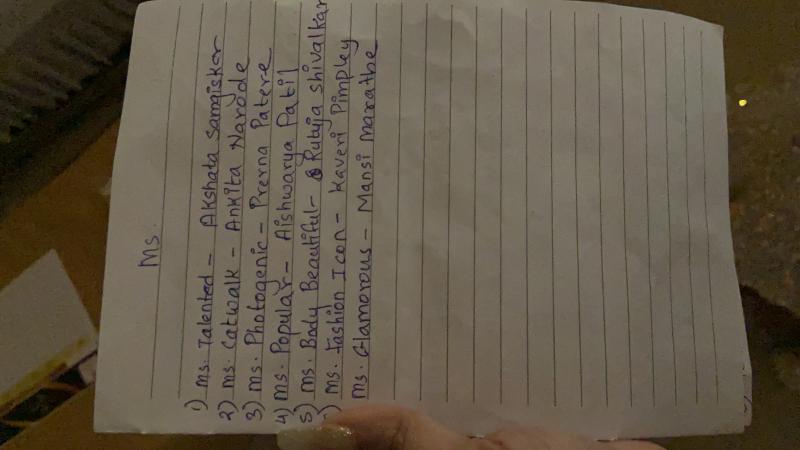 Ms.
1) Ms. Talented - Akshata Samgiskar
2) Ms. Catwalk - Ankita Narode
3) Ms. Photogenic - Prerna Patere
4) Ms. Popular - Aishwarya Patil
5) Ms. Body Beautiful - Rutuja Shivalkar
Ms. Fashion Icon - Kaveri Pimpley
Ms. Glamorous - Mansi Marathe